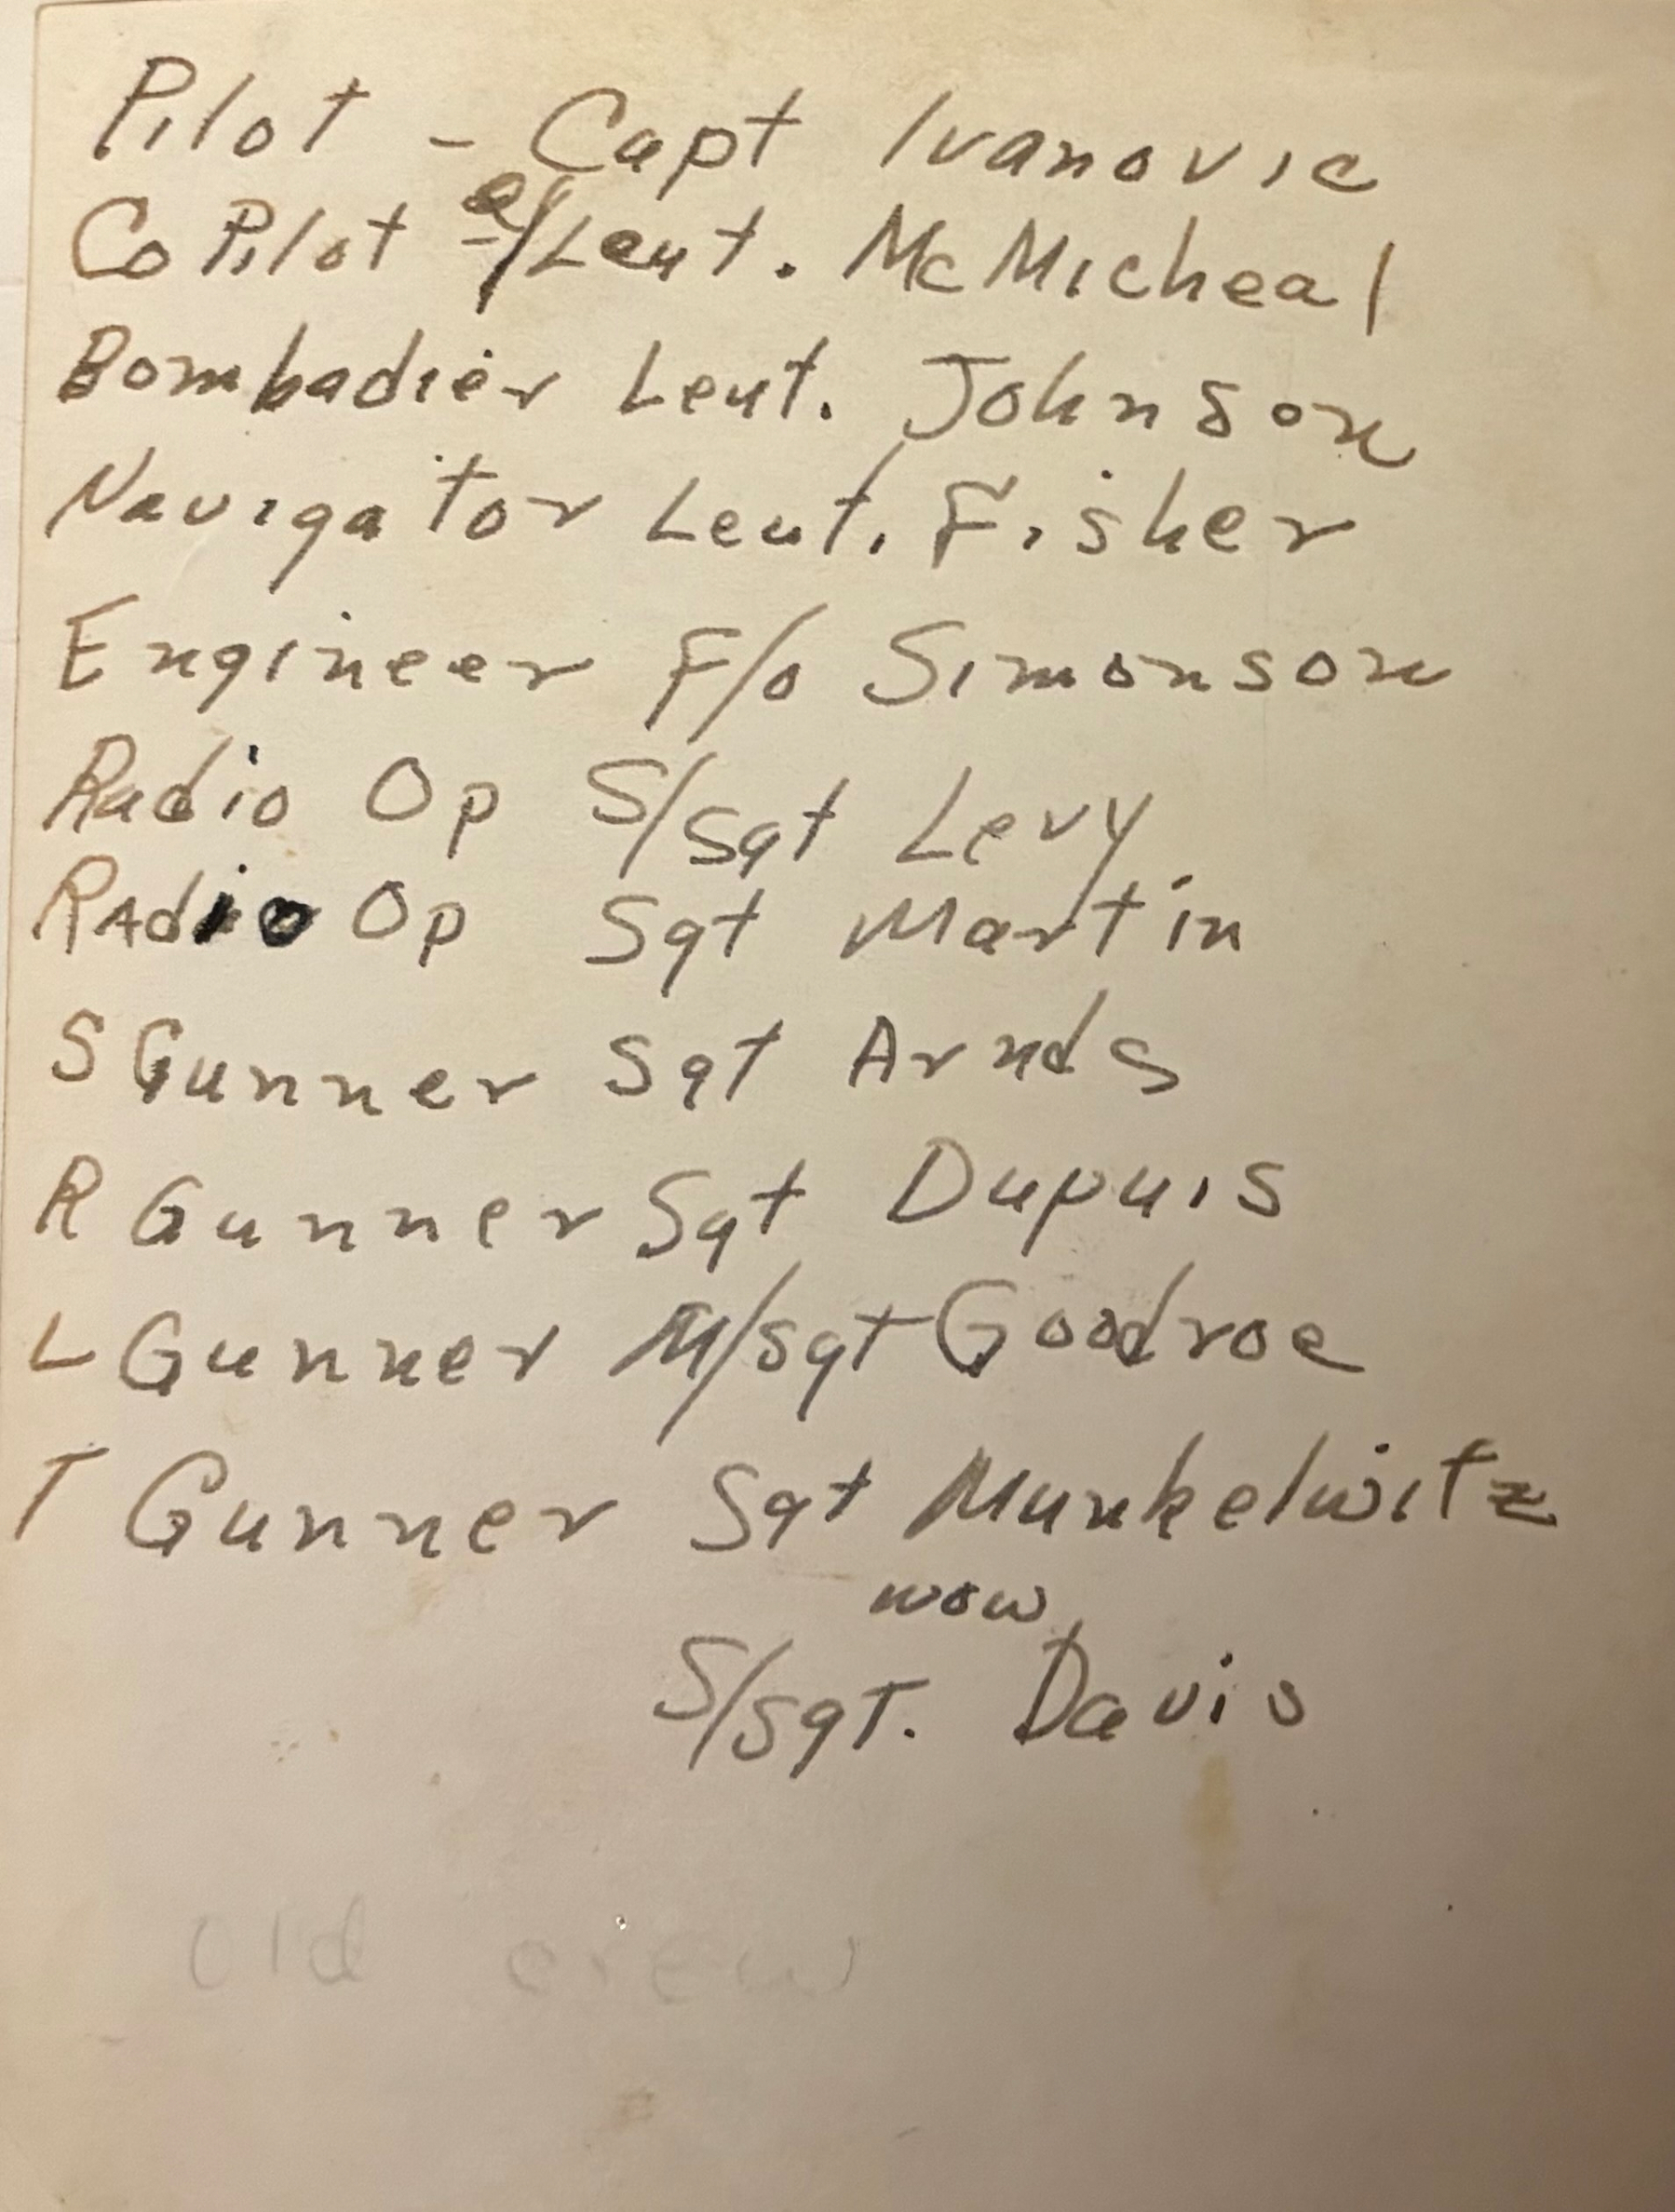 Pilot - Capt Ivanovic
Co Pilot - Leut. McMicheal
Bombadier Leut. Johnson
Navigator Leut. Fisher
Engineer F/o Simonson
Radio Op S/Sgt Levy
RAdio Op Sgt Martin
S Gunner Sgt Arnds
R Gunner Sgt Dupuis
L Gunner M/sgt Goodroe
T Gunner Sgt Munkelwitz
wow
S/sgt. Davis
old crew